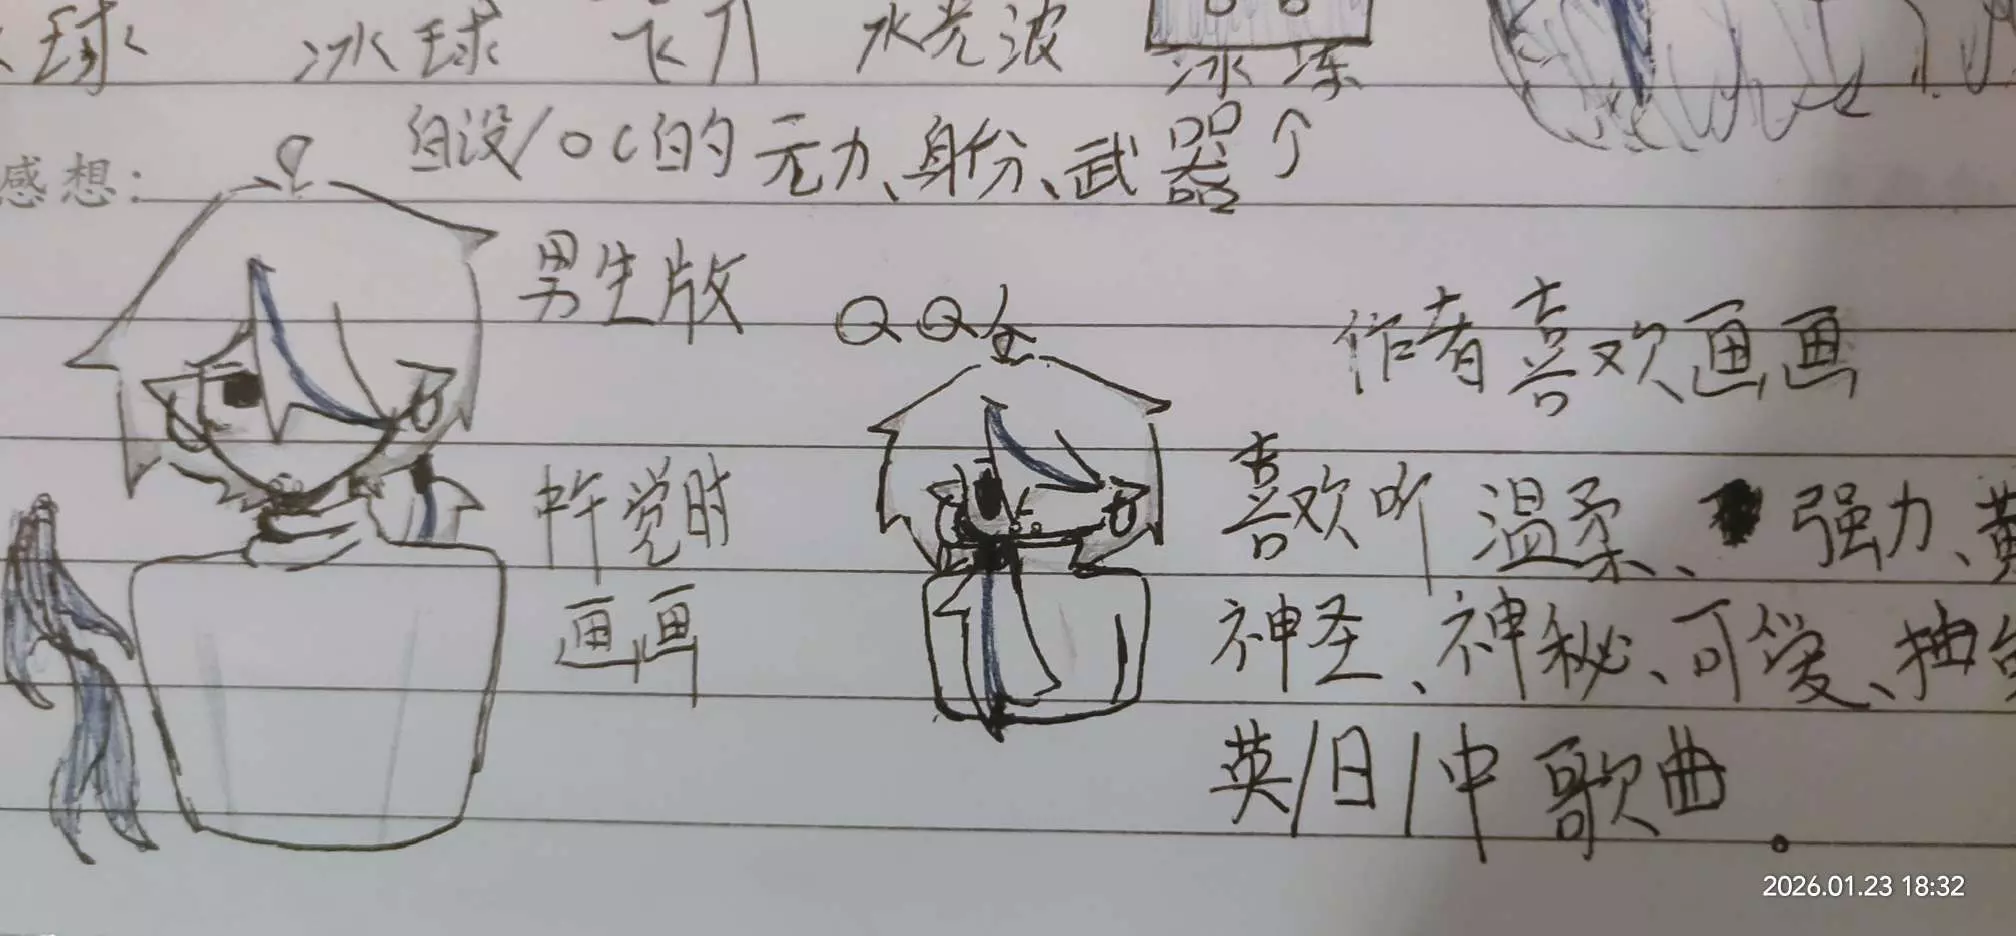 球 冰球 飞刀 水光波 冰冻
自设/OC的元力、身份、武器个
感想:
男生版
QQ
作者喜欢画画
喜欢听温柔、强力、
午觉时
画画
神圣、神秘、可爱、抽
英/日/中歌曲。
2026.01.23 18:32